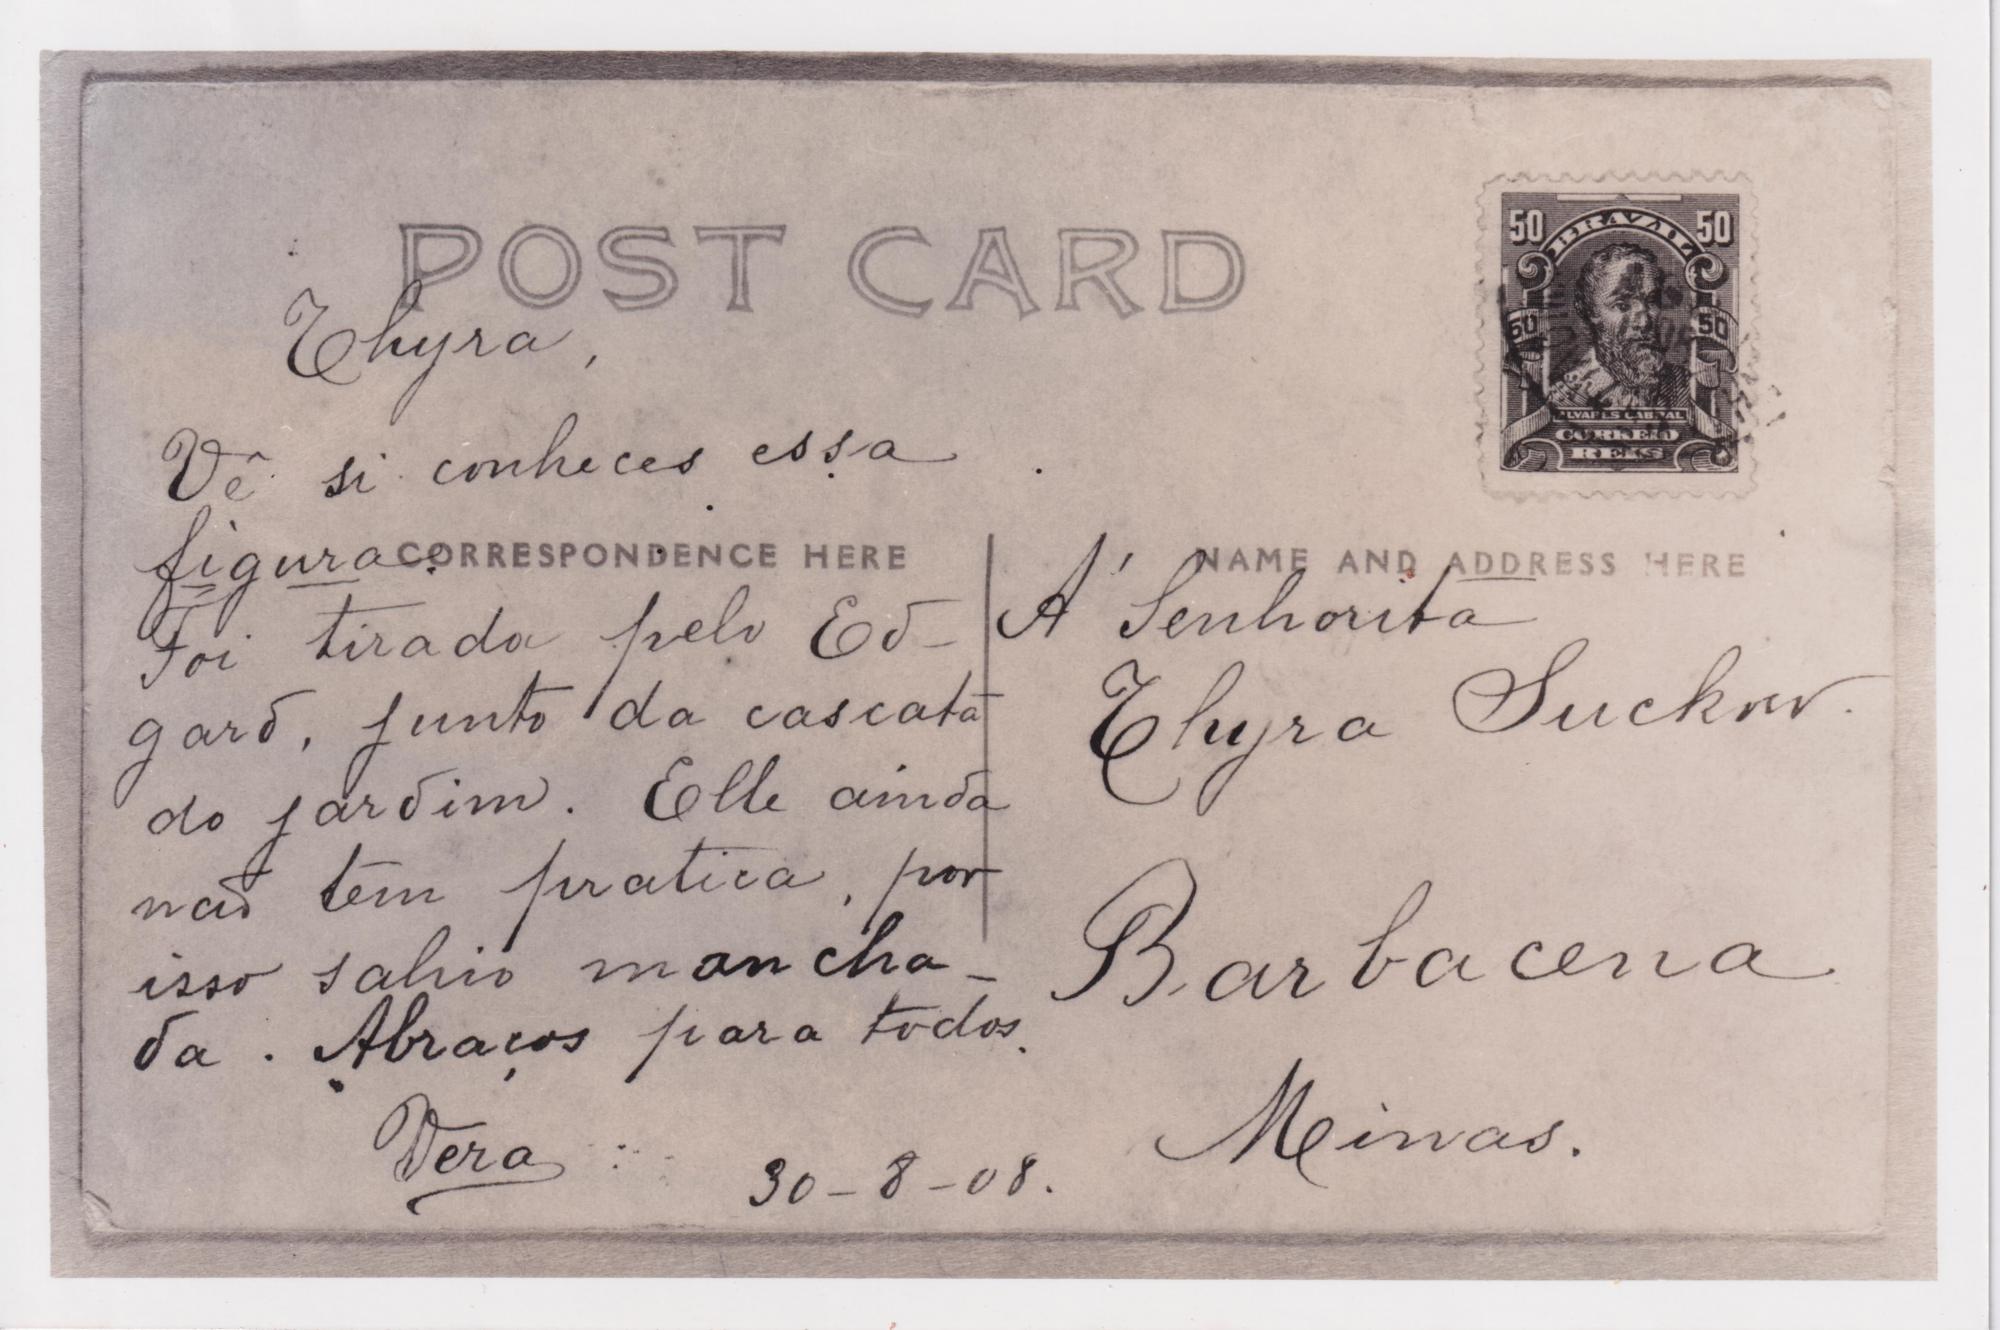 POST CARD
50 BRAZIL 50
50 50
ALVARES CABRAL
CORREIO
REIS
Thyra,
Vê si conheces essa
figura.
CORRESPONDENCE HERE
Foi tirada pelo Ed-
gard, junto da cascata
do jardim. Elle ainda
não tem pratica, por
isso sahio mancha-
da. Abraços para todos.
Vera
30-8-08.
NAME AND ADDRESS HERE
A' Senhorita
Thyra Suckow.
Barbacena
Minas.